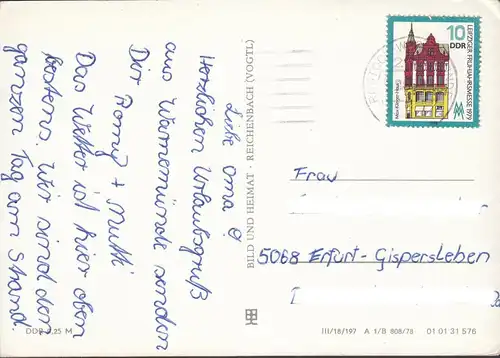 Liebe Oma!
Herzlichen Urlaubsgruß
aus Warnemünde senden
Dir Romy + Mutti
Das Wetter ist hier oben
bestens. Wir sind den
ganzen Tag am Strand.
BILD UND HEIMAT · REICHENBACH (VOGTL)
10
DDR
LEIPZIGER FRÜHJAHRSMESSE 1979
Max-Klinger-Haus
Frau
5068 Erfurt-Gispersleben
DDR 0,25 M
III/18/197 A 1/B 808/78 01 01 31 576